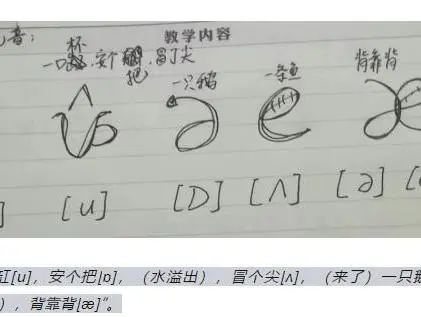 音：
教学内容
杯
一口缸，安个把，冒个尖
把
一只鹅
一条鱼
背靠背
[u] [D] [ʌ] [ə]
缸[u]，安个把[ɒ]，（水溢出），冒个尖[ʌ]，（来了）一只鹅
），背靠背[æ]”。